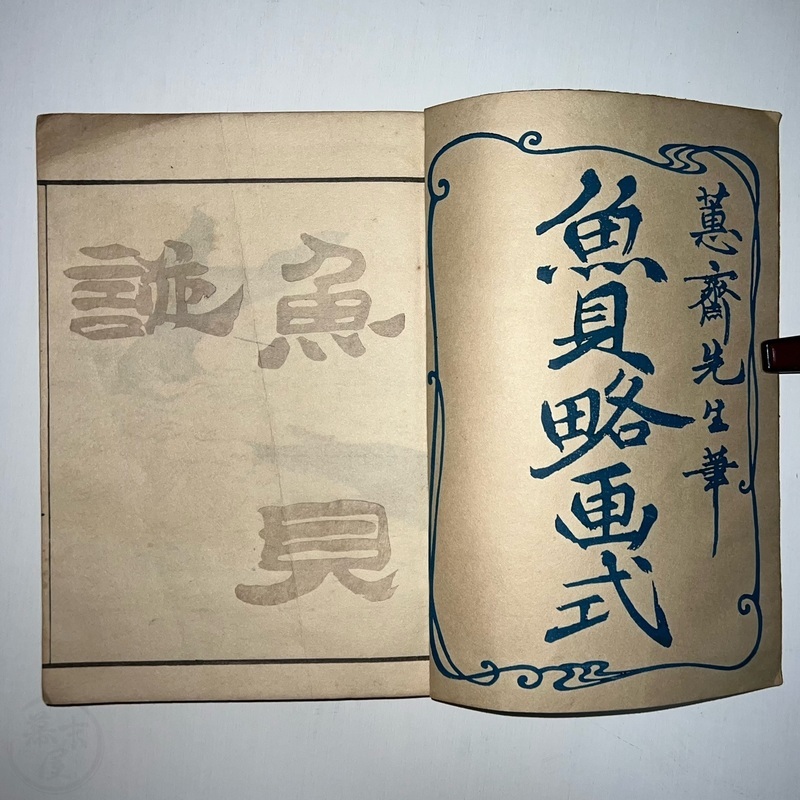 蕙齋先生筆
魚貝略画式
魚貝